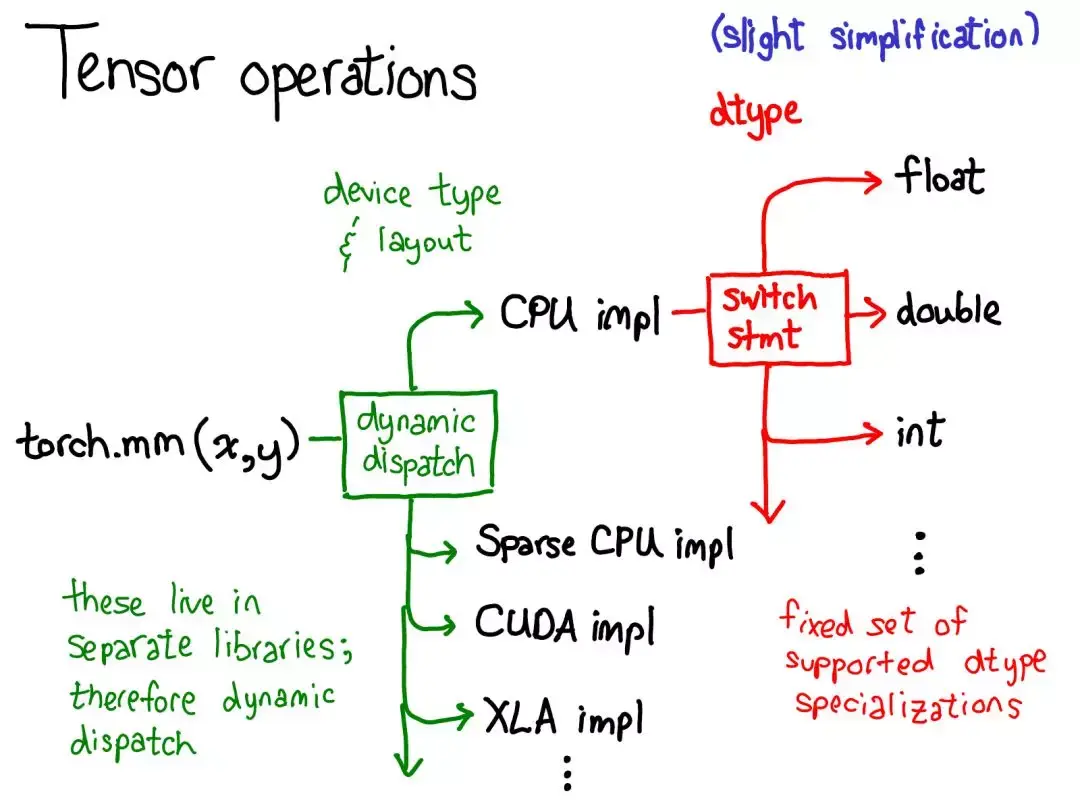 Tensor operations
(slight simplification)
dtype
device type
& layout
float
CPU impl
switch
stmt
double
torch.mm(x,y)
dynamic
dispatch
int
Sparse CPU impl
CUDA impl
XLA impl
⋮
these live in
separate libraries;
therefore dynamic
dispatch
⋮
fixed set of
supported dtype
specializations